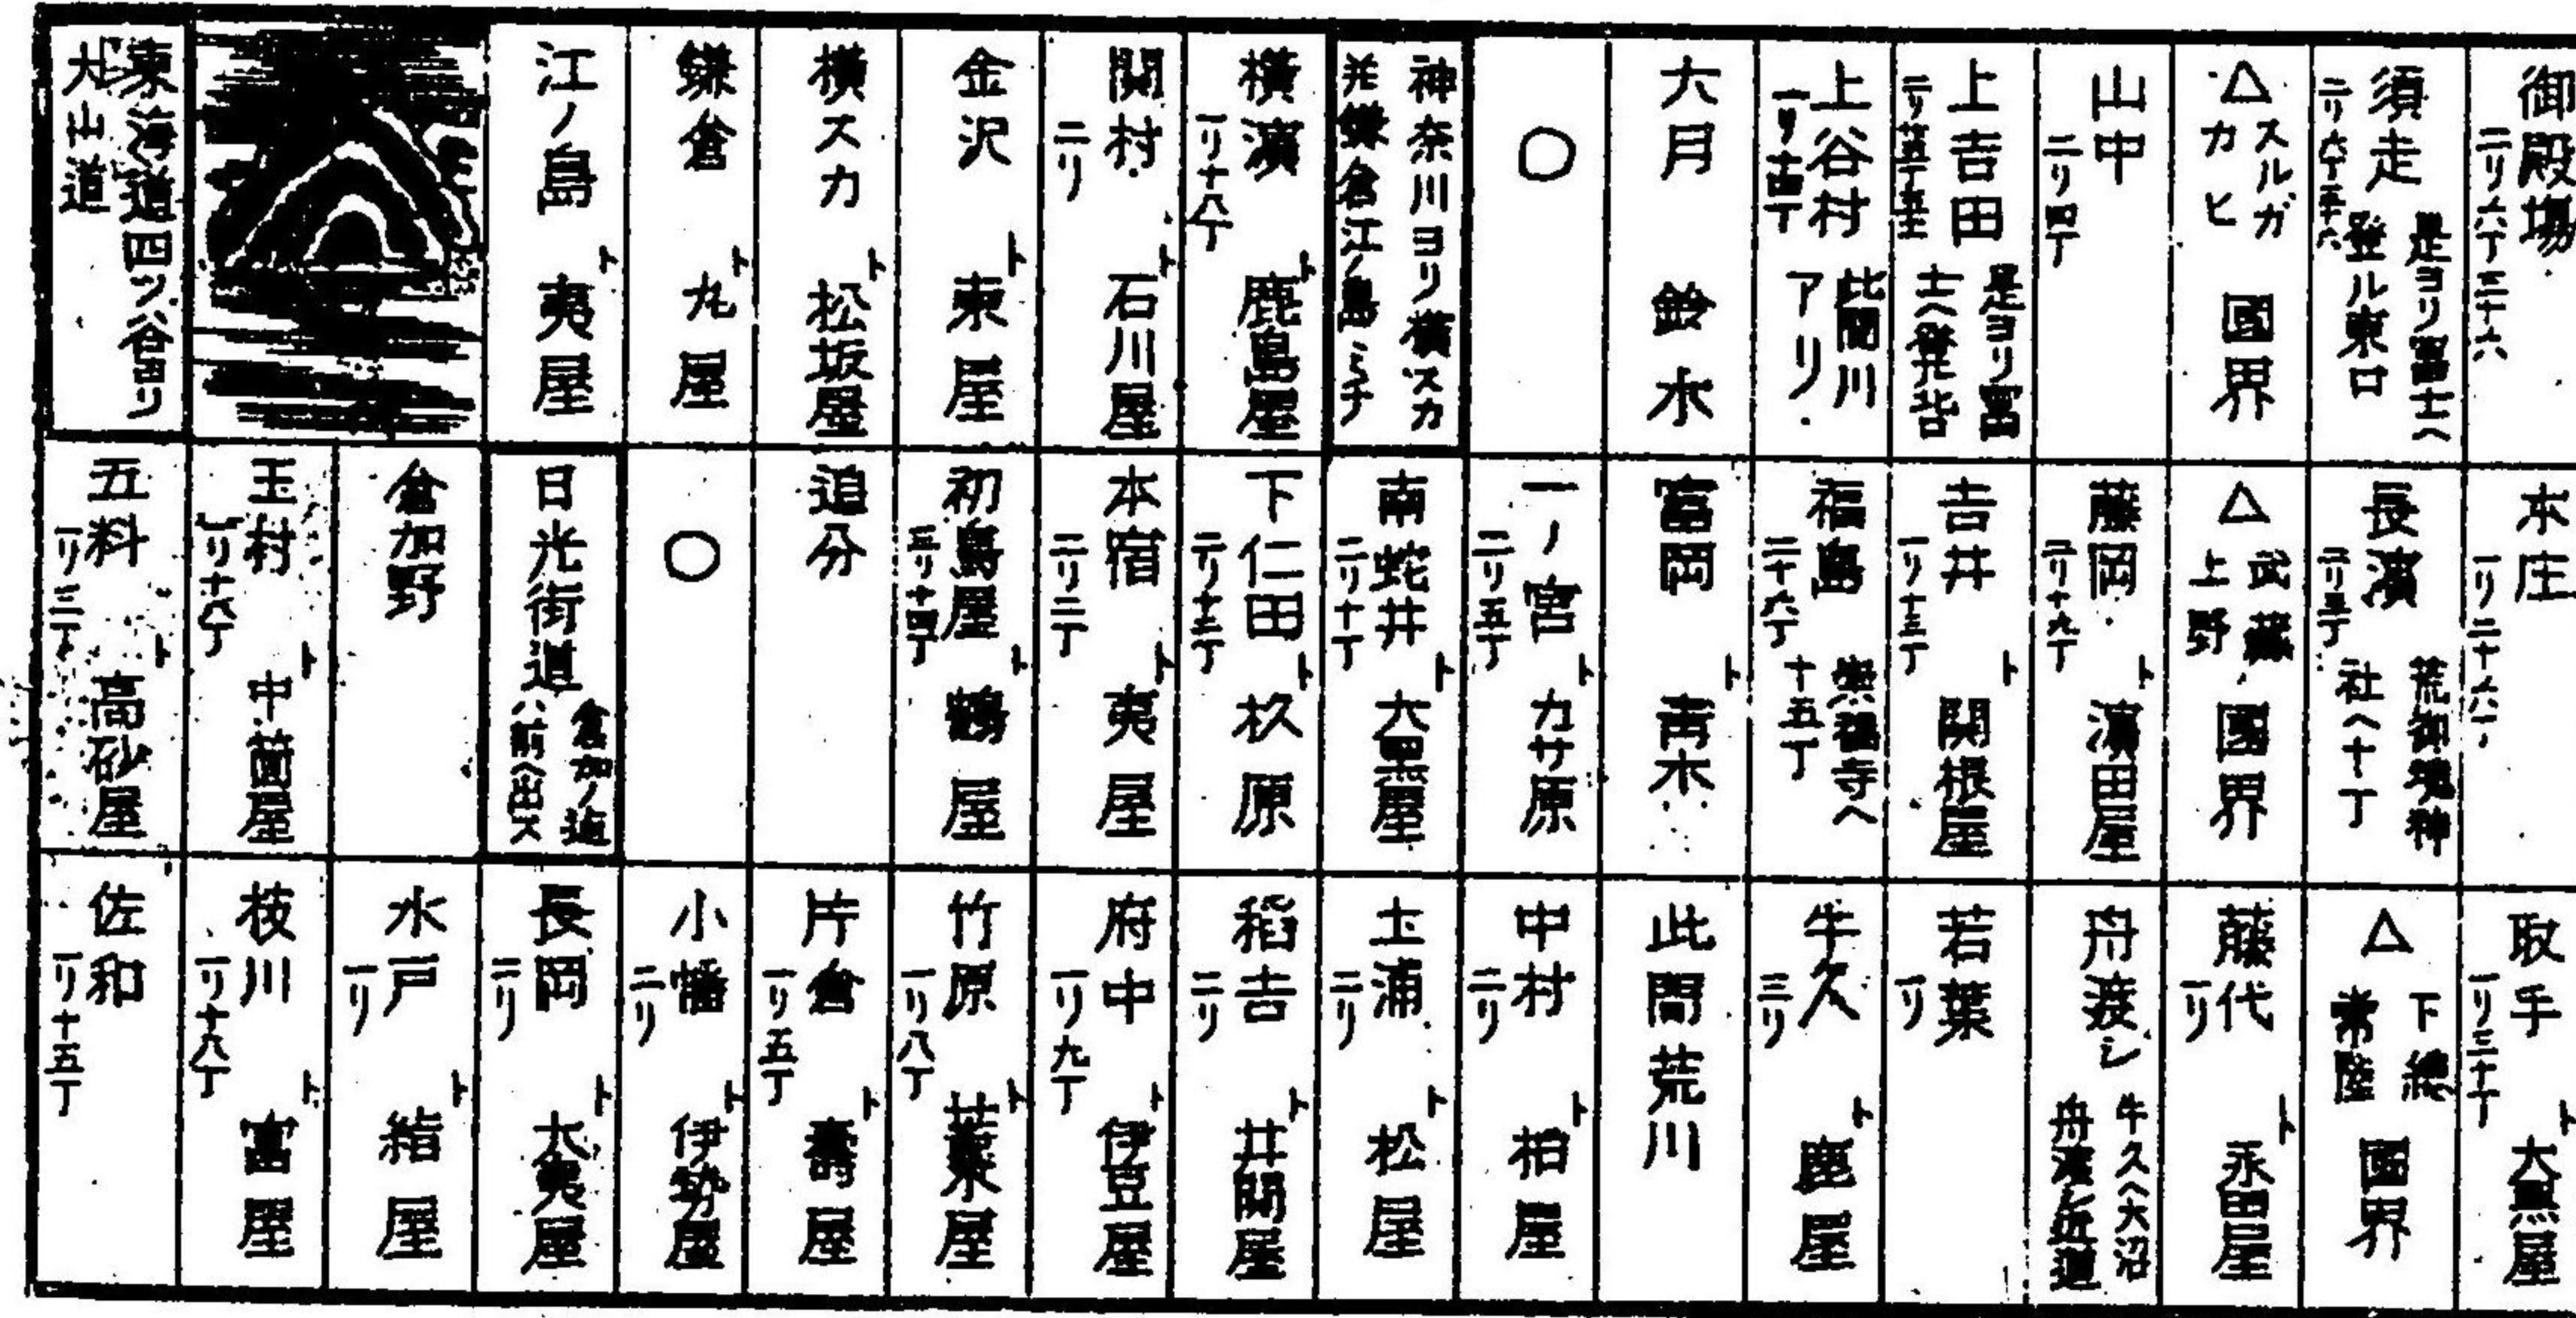 御殿場 二リ六丁三十六
須走 二リ六丁三十六 是ヨリ富士ヘ登ル東口
△スルガ カヒ 國界
山中 二リ四丁
上吉田 是ヨリ富士ヘ登ル
上谷村 一リ十四丁 此間川アリ
大月 鈴木
○
神奈川ヨリ横スカ
鎌倉江ノ島ミチ
横濱 一リ十八丁 ト 鹿島屋
関村 二リ ト 石川屋
金沢 ト 東屋
横スカ ト 松坂屋
鎌倉 ト 丸屋
江ノ島 ト 夷屋
東海道四ツ谷ヨリ
大山道
本庄 一リ二十八丁
長濱 二リ 荒御魂神社ヘ十丁
△武藏 上野 國界
藤岡 二リ十九丁 ト 濱田屋
吉井 一リ十三丁 ト 関根屋
福島 二十六丁 寺ヘ十五丁
富岡 ト 青木
一ノ宮 二リ五丁 ト カサ原
南蛇井 二リ十丁 ト 大黒屋
下仁田 ト 杉原
本宿 二リ二丁 ト 夷屋
初鳥屋 三リ十四丁 ト 鶴屋
追分
○
日光街道 倉加ノ
ハ前ヘ出ス
倉加野
玉村 一リ十八丁 ト 中箇屋
五料 一リ三丁 ト 高砂屋
取手 一リ三十丁 ト 大黒屋
△下總 常陸 國界
藤代 一リ ト 永田屋
舟渡シ 牛久ヘ大沼舟渡シ近道
若葉 一リ
牛久 三リ ト 鹿屋
此間荒川
中村 二リ ト 柏屋
土浦 二リ ト 松屋
稻吉 二リ ト 井関屋
府中 一リ九丁 ト 伊豆屋
竹原 一リ八丁 ト 葉屋
片倉 一リ五丁 ト 壽屋
小幡 二リ ト 伊勢屋
長岡 二リ ト 大夷屋
水戸 一リ ト 屋
枝川 一リ十八丁 ト 富屋
佐和 一リ十五丁